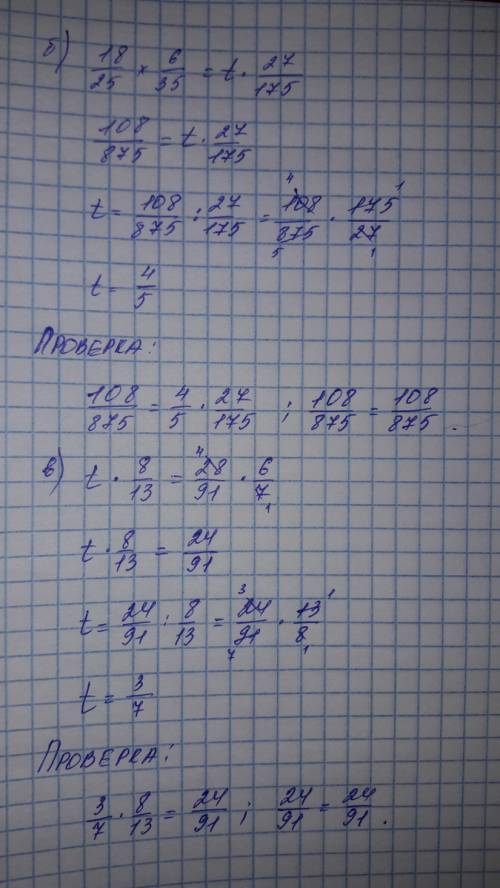 б) 18/25 × 6/35 = t · 27/175
108/875 = t · 27/175
t = 108/875 : 27/175 = 108/875 · 175/27 4 1 5 1
t = 4/5
ПРОВЕРКА:
108/875 = 4/5 · 27/175 ; 108/875 = 108/875 .
в) t · 8/13 = 28/91 · 6/7 4 1
t · 8/13 = 24/91
t = 24/91 : 8/13 = 24/91 · 13/8 3 1 7 1
t = 3/7
ПРОВЕРКА:
3/7 · 8/13 = 24/91 ; 24/91 = 24/91 .